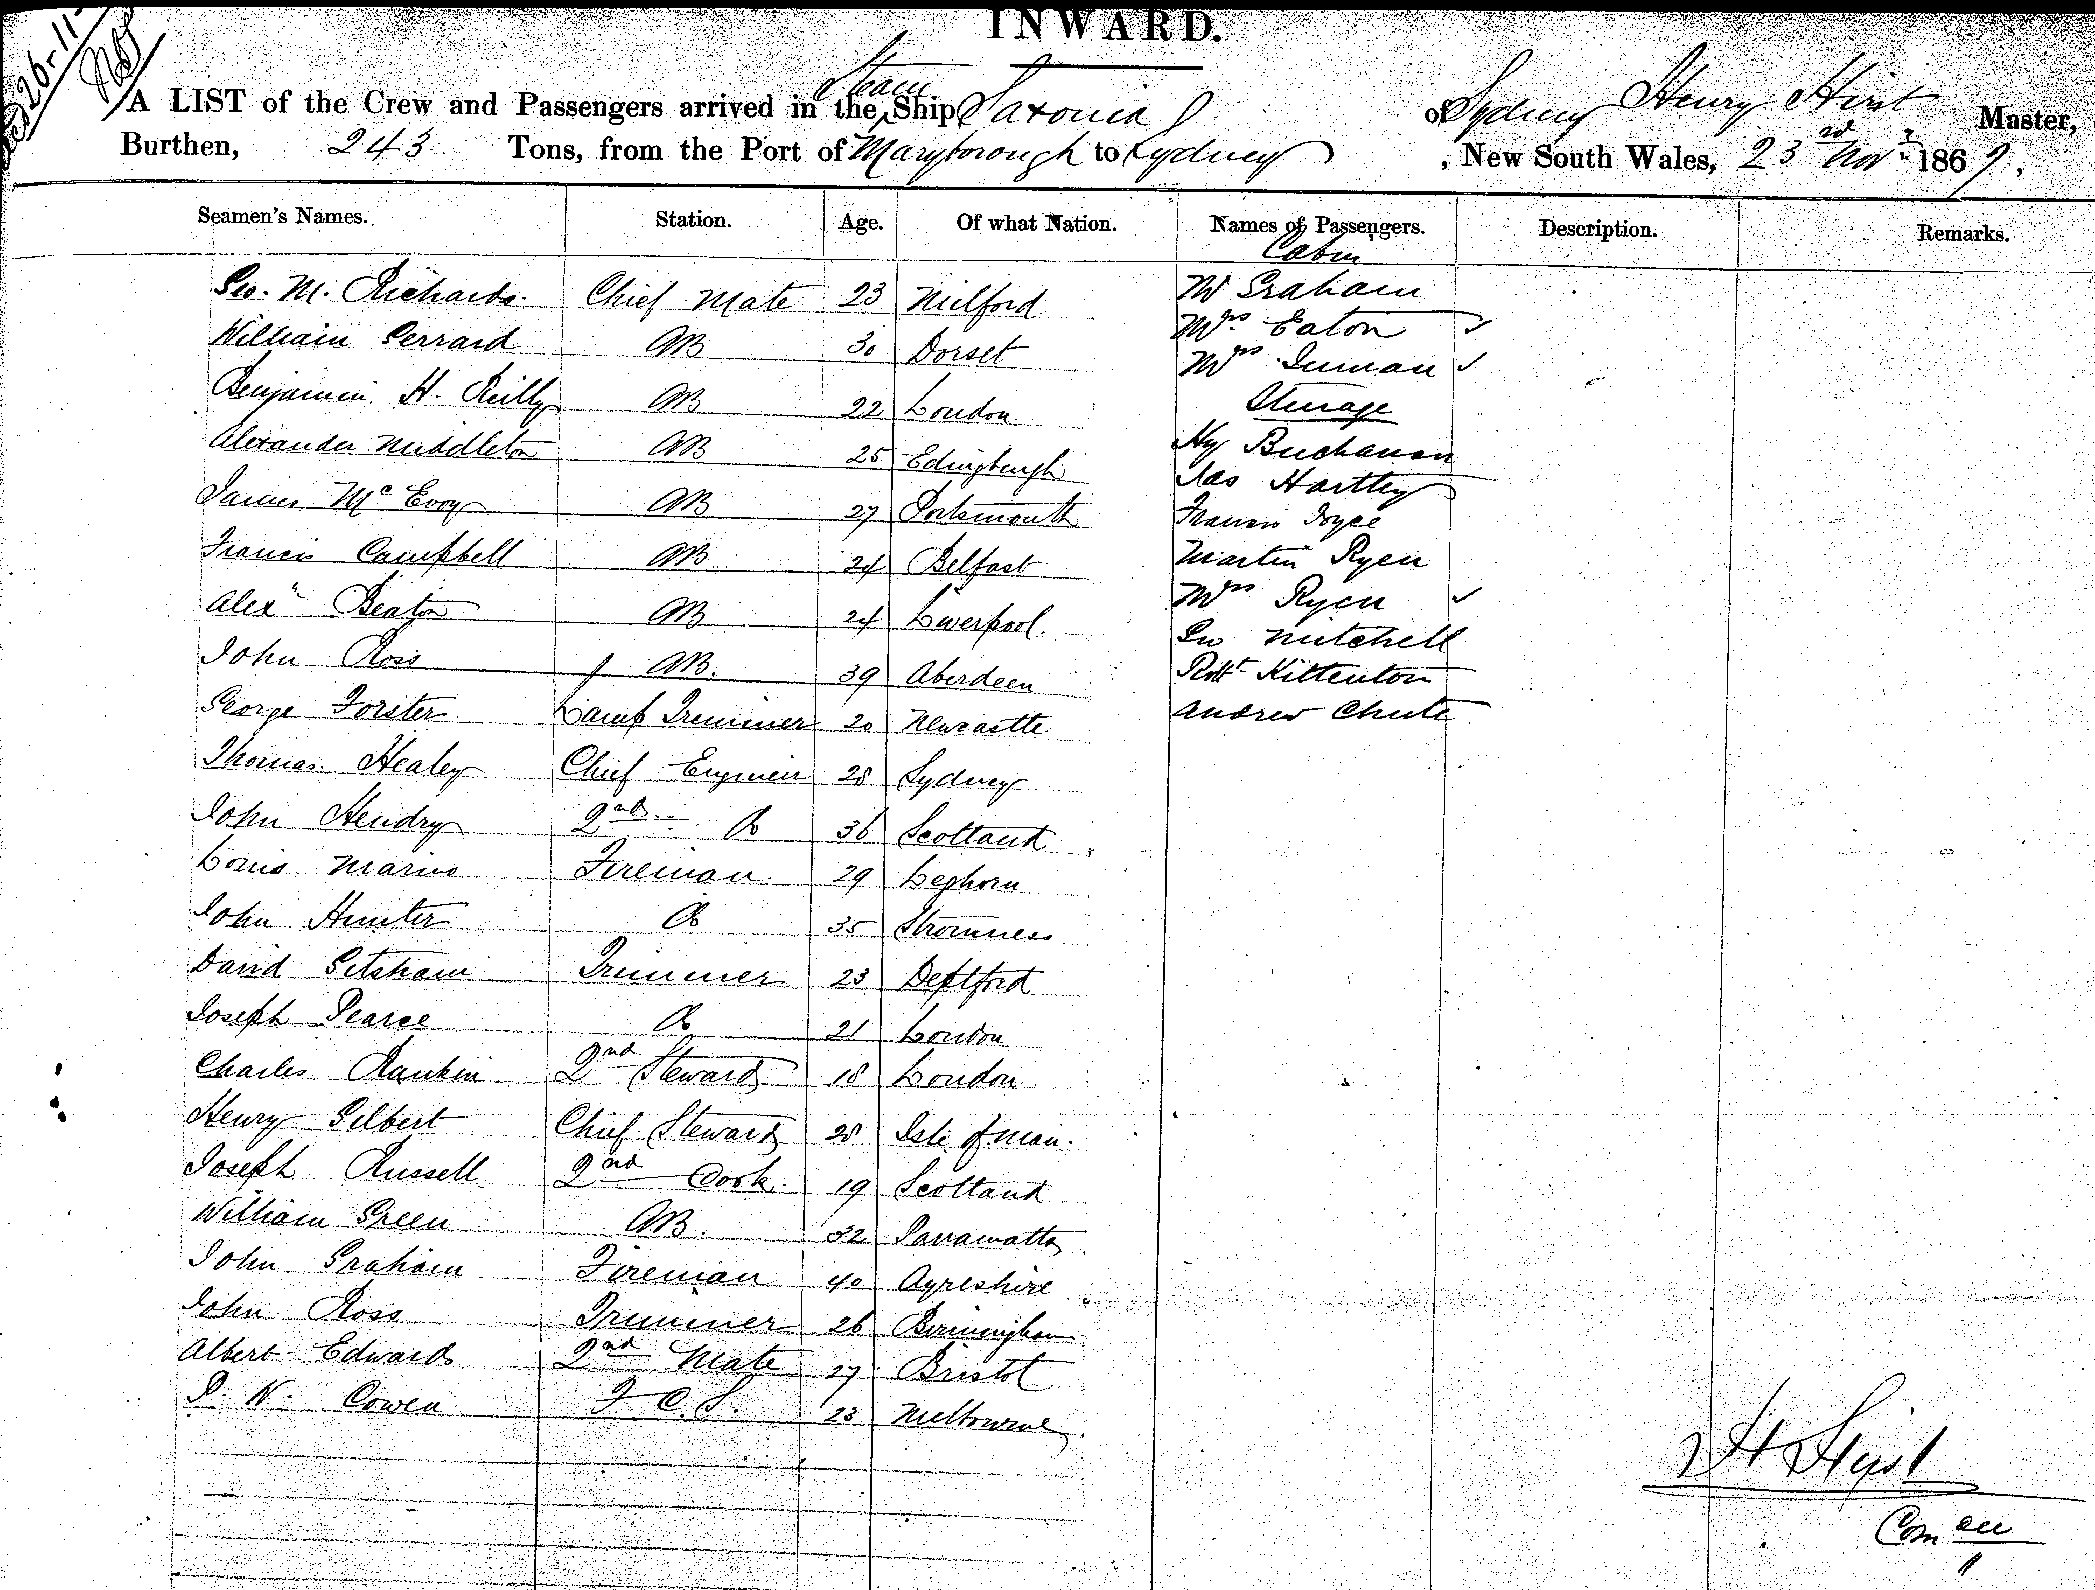 INWARD.
Steam
A LIST of the Crew and Passengers arrived in the Ship Saxonia of Sydney Henry Hirst Master,
Burthen, 243 Tons, from the Port of Maryborough to Sydney, New South Wales, 23rd Novr 1869.
Seamen's Names. Station. Age. Of what Nation. Names of Passengers. Description. Remarks.
Cabin
Geo. M. Richards. Chief Mate 23 Milford Mr Graham
William Gerrard AB 30 Dorset Mrs Eaton ✓
Benjamin H. Reilly AB 22 London Mrs Inman ✓
Steerage
Alexander Middleton AB 25 Edingburgh Hy Buchanan
James McEvoy AB 27 Portsmouth Jas Hartley
Francis Campbell AB 24 Belfast Francis Joyce
Martin Ryen
Alexr Beaton AB 24 Liverpool. Mrs Ryen ✓
John Ross AB. 39 Aberdeen Geo Mitchell
Robt Kittenton
George Forster Lamp Trimmer 20 Newcastle Andrew Chute
Thomas Healey Chief Engineer 28 Sydney
John Hendry 2nd Do 36 Scotland
Louis Marino Fireman 29 Leghorn
John Hunter Do 35 Stromness
David Getsham Trimmer 23 Deptford
Joseph Pearce Do 21 London
Charles Rankin 2nd Steward 18 London
Henry Gilbert Chief Steward 28 Isle of Man.
Joseph Russell 2nd Cook 19 Scotland
William Green AB. 32 Parramatta
John Graham Fireman 40 Ayreshire
John Ross Trimmer 26 Birmingham
Albert Edwards 2nd Mate 27 Bristol
W. Cowen 23 Melbourne
H Hirst